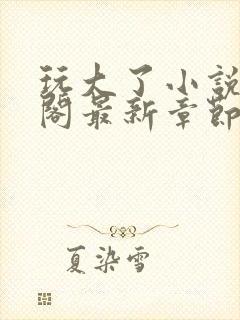 玩大了小說
閣最新章節
夏染雪